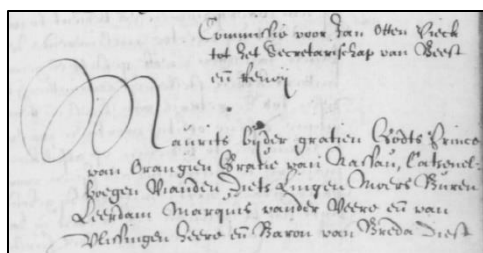 Commissie voor Jan Otten Vieck
tot het Secretarischap van Beest
en̄ Renoij
Maurits bijder gratien Godts Prince
van Orangien Gravie van Nassau, Catzenel-
boegen Vianden Dietz Lingen Moers Buren
Leerdam Marquis vander Veere en̄ van
Vlissingen heere en̄ Baron van Breda Diest